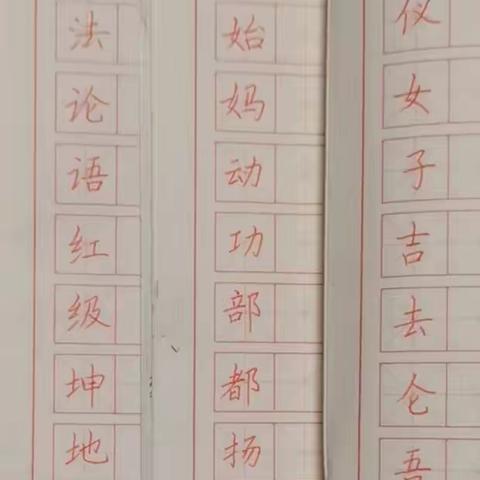 法论语红级坤地
始妈动功部都扬
仪女子吉去仑吾